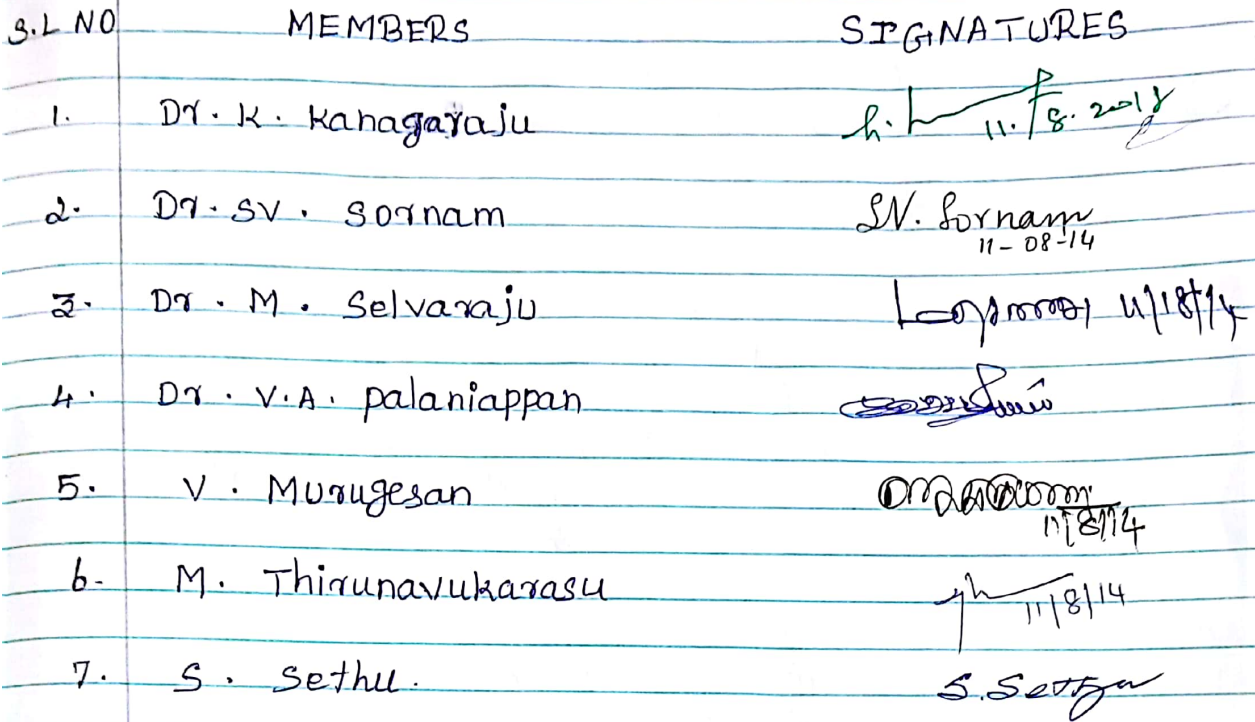 S.L NO MEMBERS SIGNATURES
1. Dr. K. Kanagaraju 11.8.2014
2. Dr. SV. Sornam SV. Sornam
11-08-14
3. Dr. M. Selvaraju 11/8/14
4. Dr. V.A. Palaniappan
5. V. Murugesan
11/8/14
6- M. Thirunavukarasu 11/8/14
7. S. Sethu. S. Sethu